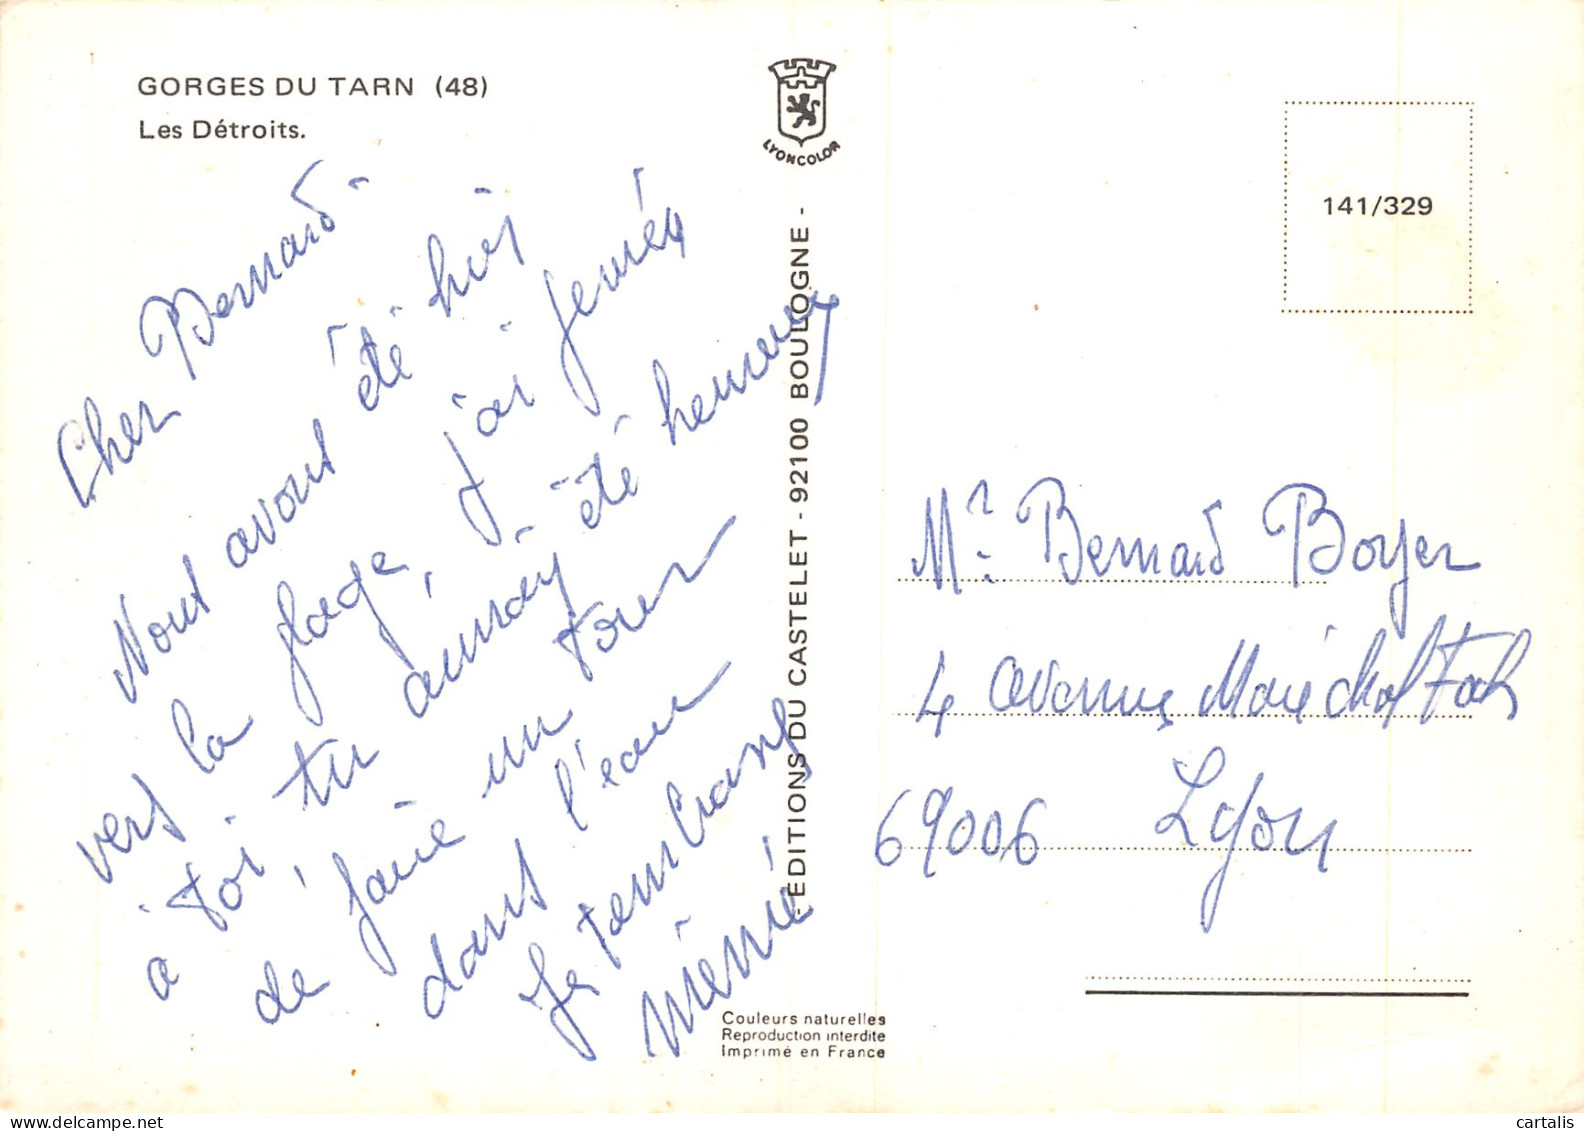 GORGES DU TARN (48)
Les Détroits.
LYONCOLOR
141/329
Cher Bernard -
Nous avons été hier
vers la plage, j'ai pensé
à toi, tu aurais été heureux
de faire un tour
dans l'eau
Je t'embrasse
Mémé
EDITIONS DU CASTELET - 92100 BOULOGNE -
Mr. Bernard Boyer
4 avenue Maréchal Foch
69006 Lyon
Couleurs naturelles
Reproduction interdite
Imprimé en France
cartalis